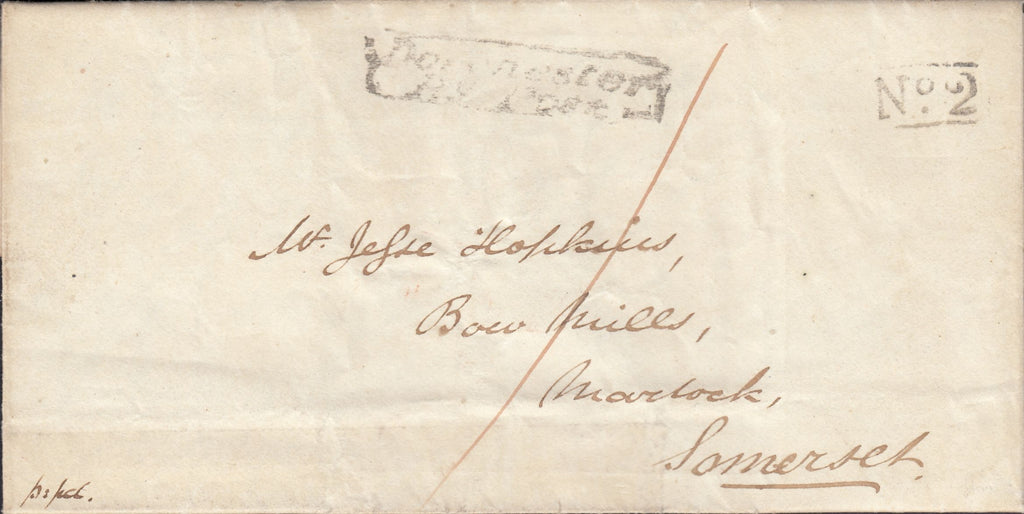 Dorchester
Py Post
No. 2
Mr. Jesse Hopkins,
Bow Mills,
Martock,
Somerset.